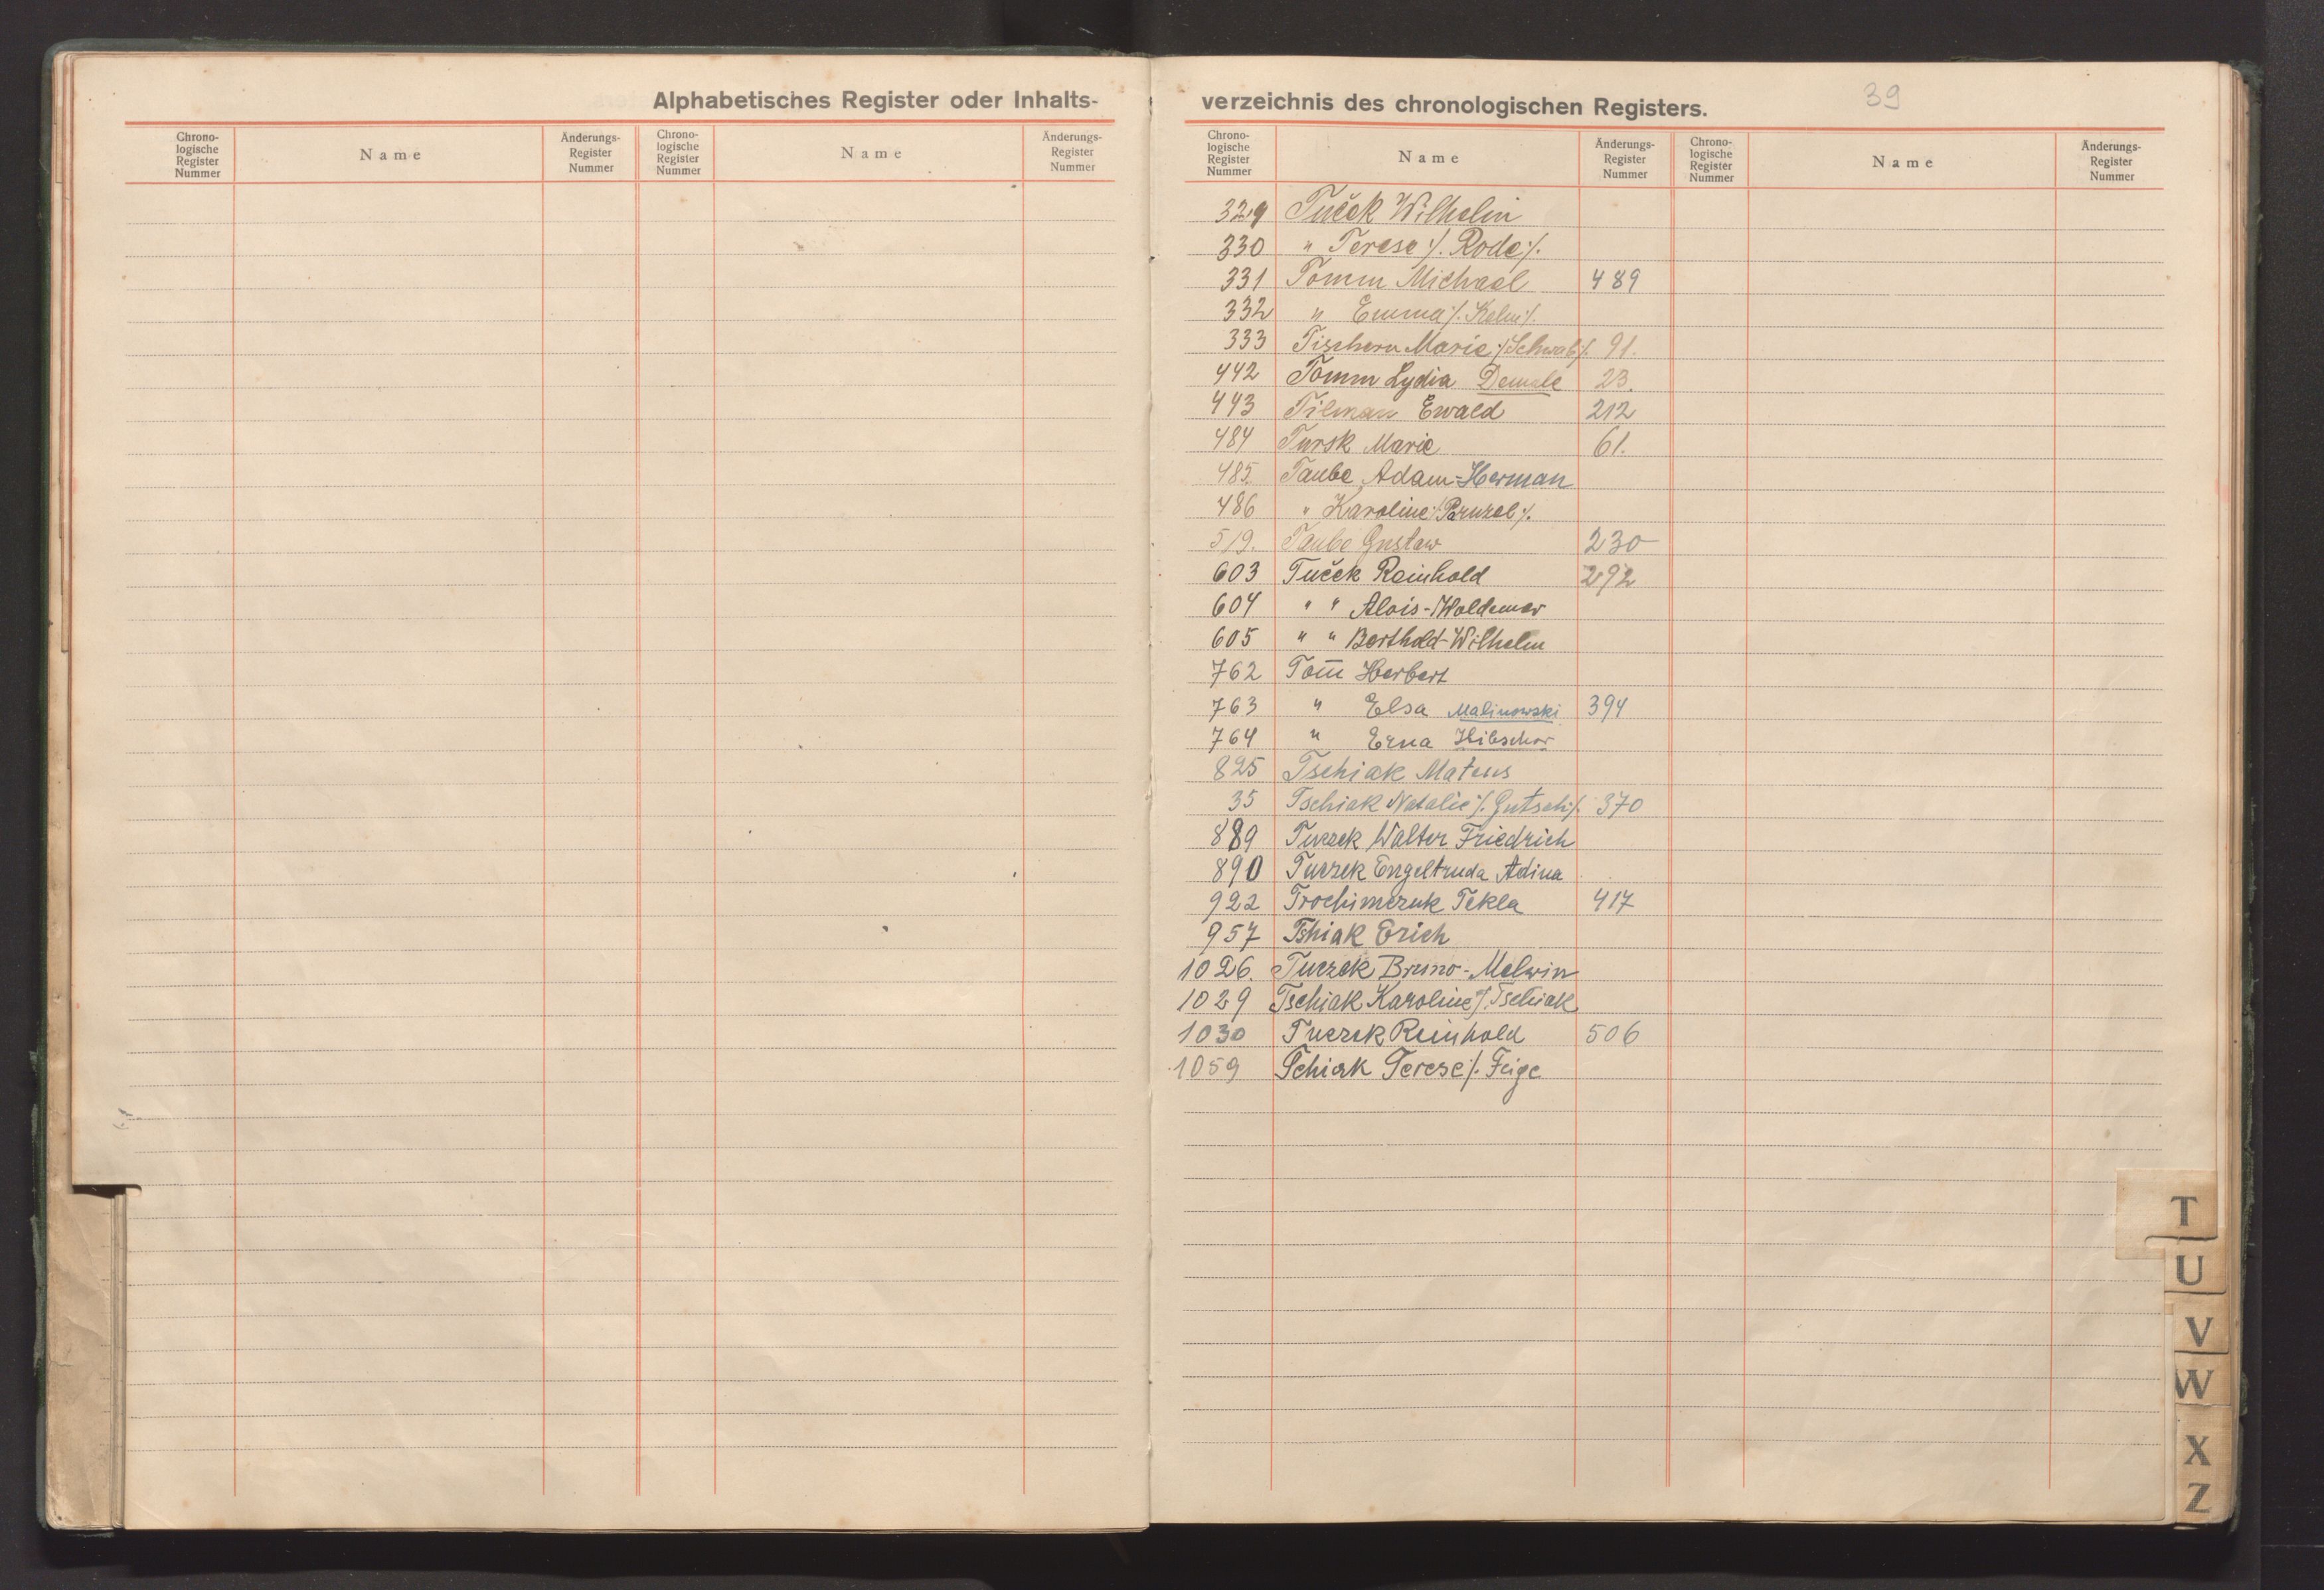 Alphabetisches Register oder Inhalts-
Chrono- logische Register Nummer Name Änderungs- Register Nummer Chrono- logische Register Nummer Name Änderungs- Register Nummer
verzeichnis des chronologischen Registers. 39
Chrono- logische Register Nummer Name Änderungs- Register Nummer Chrono- logische Register Nummer Name Änderungs- Register Nummer
329 Tuček Wilhelm
330 " Terese ·/. Rode ·/.
331 Tomm Michael 489
332 " Emma ·/. Kelm ·/.
333 Tischern Marie ·/. Schwab ·/. 91.
442 Tomm Lydia 23.
443 Tilman Ewald 212
484 Tursk Marie 61.
485. Taube Adam-Herman
486 " Karoline ·/.
519. Taube Gustaw 230
603 Tuček Reinhold 292
604 " " Alois-Woldemar
605 " " Berthold-Wilhelm
762 Tom̅ Herbert
763 " Elsa Malinowski 394
764 " Erna Hibscher
825 Tschiak Mateus
35 Tschiak Natalie ·/. Gutsch ·/. 370
889 Tuczek Walter Friedrich
890 Tuczek Engeltruda Adina
922 Trochimczuk Tekla 417
957 Tshiak Erich
1026. Tuczek Bruno-Melwin
1029 Tschiak Karoline ·/. Tschiak
1030 Tuczek Reinhold 506
1059 Tchiak Terese ·/. Feige
T
U
V
W
X
Z